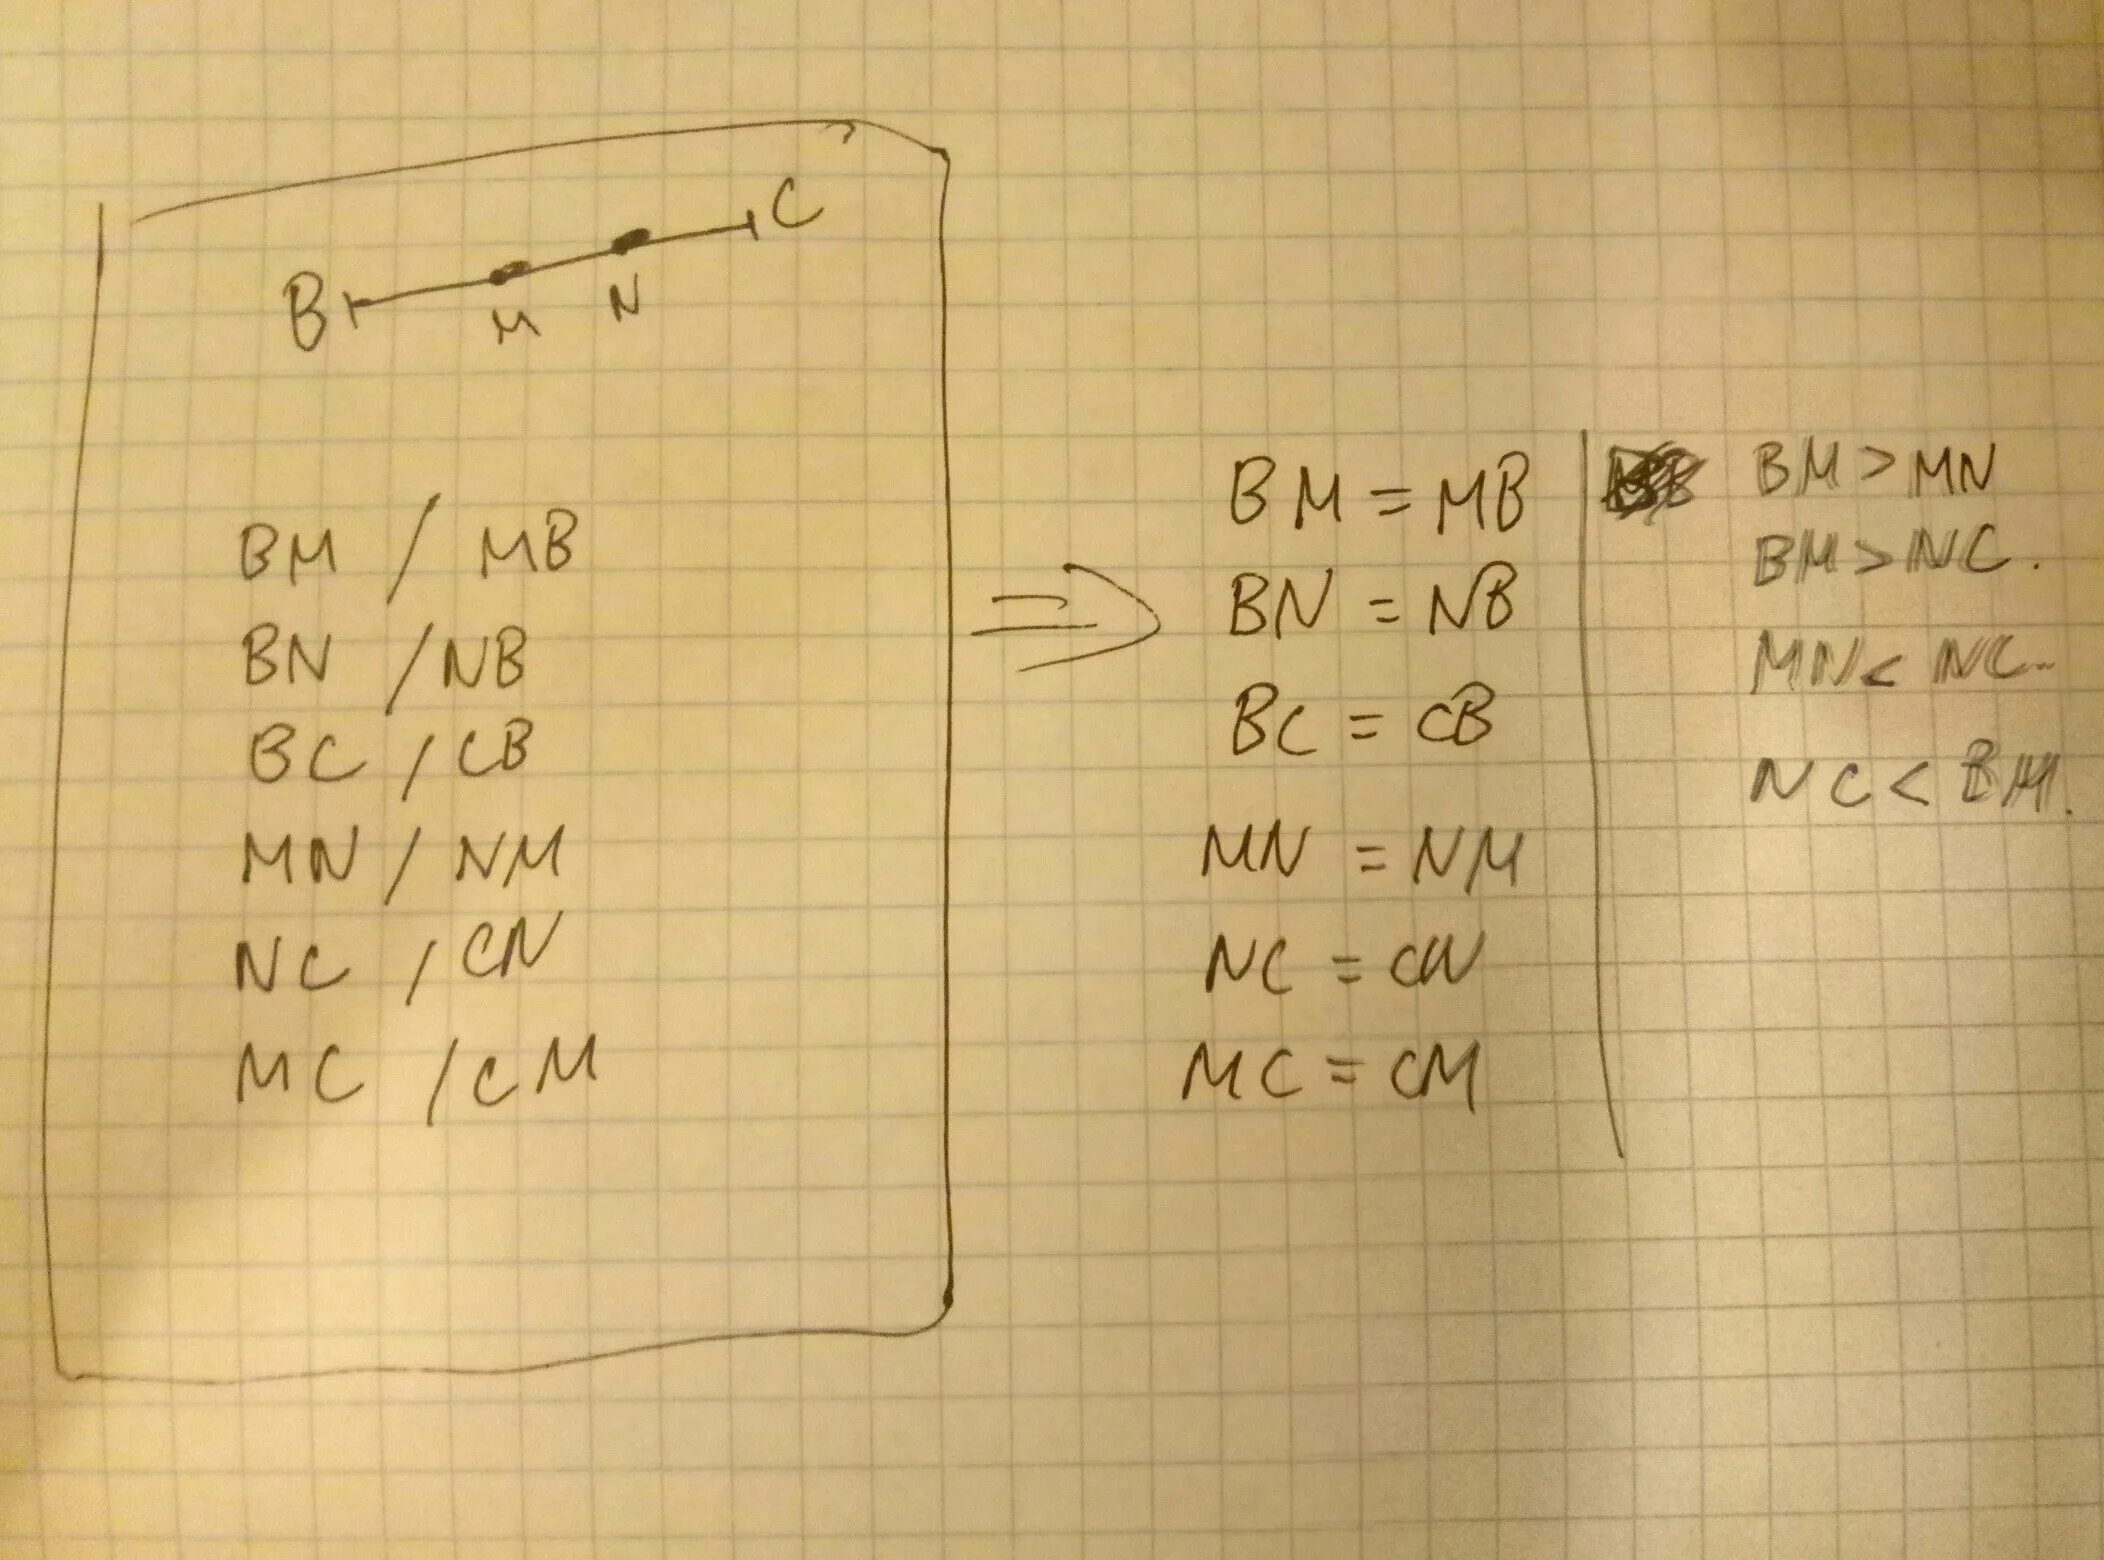 C
B
M
N
BM / MB
BN / NB
BC / CB
MN / NM
NC / CN
MC / CM
=>
BM = MB
BN = NB
BC = CB
MN = NM
NC = CN
MC = CM
BM > MN
BM > NC.
MN < NC.
NC < BM.